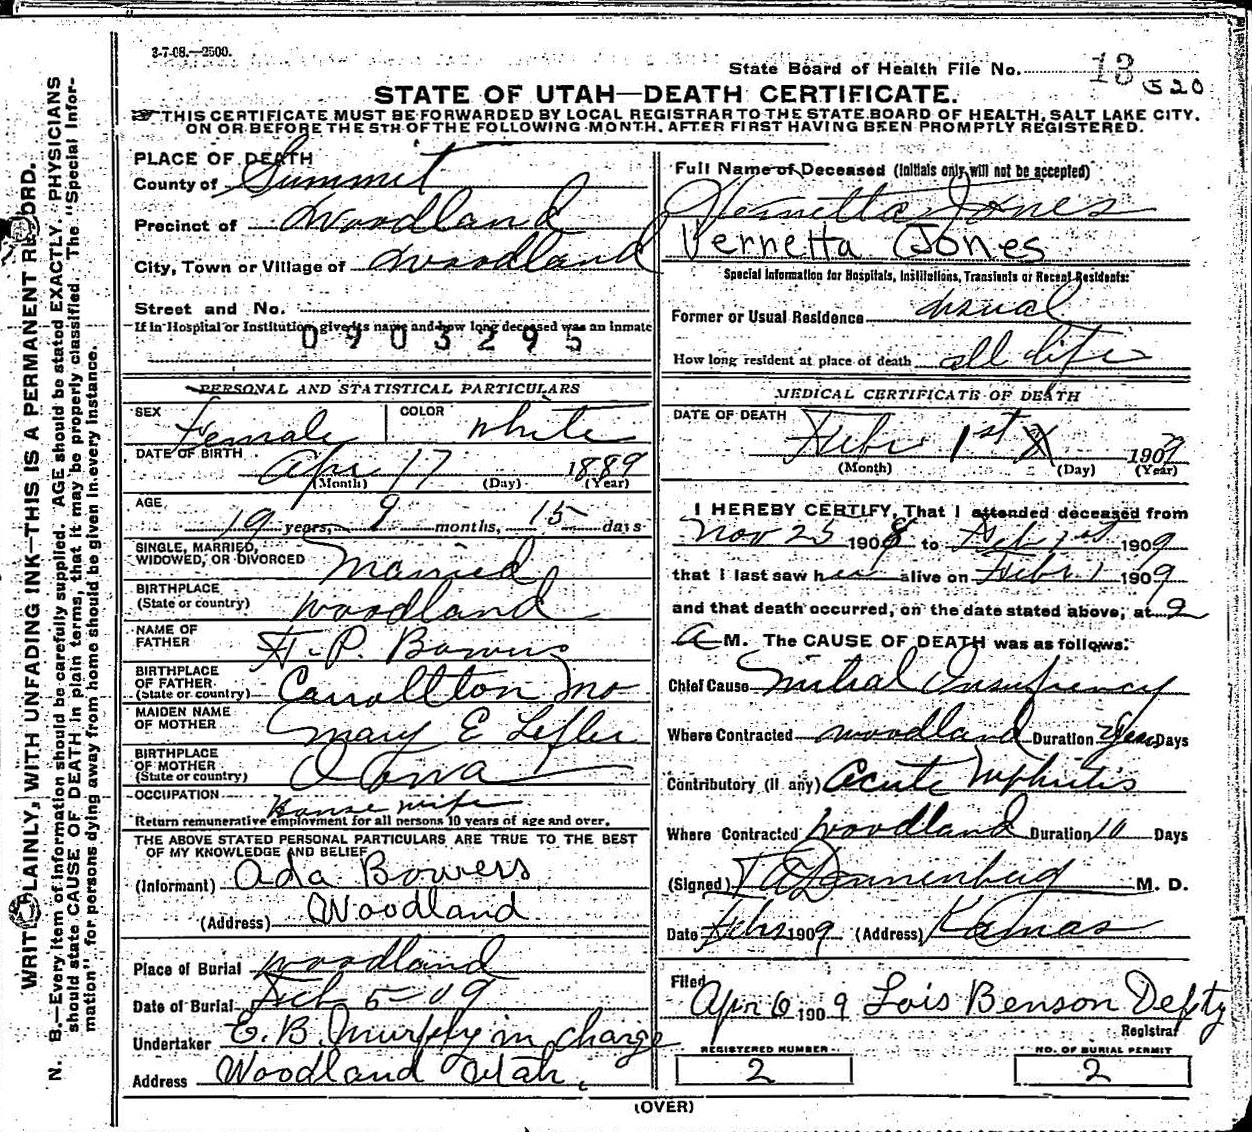 3-7-08.—2500.
State Board of Health File No. 13 320
STATE OF UTAH—DEATH CERTIFICATE.
THIS CERTIFICATE MUST BE FORWARDED BY LOCAL REGISTRAR TO THE STATE BOARD OF HEALTH, SALT LAKE CITY,
ON OR BEFORE THE 5TH OF THE FOLLOWING MONTH, AFTER FIRST HAVING BEEN PROMPTLY REGISTERED.
WRITE PLAINLY, WITH UNFADING INK—THIS IS A PERMANENT RECORD.
N. B.—Every item of information should be carefully supplied. AGE should be stated EXACTLY. PHYSICIANS
should state CAUSE OF DEATH in plain terms, that it may be properly classified. The "Special Infor-
mation" for persons dying away from home should be given in every instance.
PLACE OF DEATH
County of Summit
Precinct of Woodland
City, Town or Village of Woodland
Street and No.
If in Hospital or Institution, give its name and how long deceased was an inmate
0903295
PERSONAL AND STATISTICAL PARTICULARS
SEX Female COLOR White
DATE OF BIRTH Apr 17 1889
(Month) (Day) (Year)
AGE
19 years, 9 months, 15 days
SINGLE, MARRIED,
WIDOWED, OR DIVORCED Married
BIRTHPLACE
(State or country) Woodland
NAME OF
FATHER F. P. Bowers
BIRTHPLACE
OF FATHER
(State or country) Carrollton Mo
MAIDEN NAME
OF MOTHER Mary E Lefler
BIRTHPLACE
OF MOTHER
(State or country) Iowa
OCCUPATION House wife
Return remunerative employment for all persons 10 years of age and over.
THE ABOVE STATED PERSONAL PARTICULARS ARE TRUE TO THE BEST
OF MY KNOWLEDGE AND BELIEF
(Informant) Ada Bowers
(Address) Woodland
Place of Burial Woodland
Date of Burial Feb 5-09
Undertaker E. B. Murphy in charge
Address Woodland Utah.
Full Name of Deceased (Initials only will not be accepted)
Jones
Vernetta Jones
Special Information for Hospitals, Institutions, Transients or Recent Residents:
Former or Usual Residence usual
How long resident at place of death all life
MEDICAL CERTIFICATE OF DEATH
DATE OF DEATH
Febr 1st 1909
(Month) (Day) (Year)
I HEREBY CERTIFY, That I attended deceased from
Nov 25 1908 to Feb 1st 1909
that I last saw her alive on Febr 1 1909
and that death occurred, on the date stated above, at 2
A M. The CAUSE OF DEATH was as follows:
Chief Cause Mitral Insufiency
Where Contracted Woodland Duration Days
Contributory (if any) Acute Nephritis
Where Contracted Woodland Duration 10 Days
(Signed) Dannenberg M. D.
Date 1909 (Address) Kamas
Filed
Apr 6 1909 Lois Benson Depty
Registrar
REGISTERED NUMBER
2
NO. OF BURIAL PERMIT
2
(OVER)